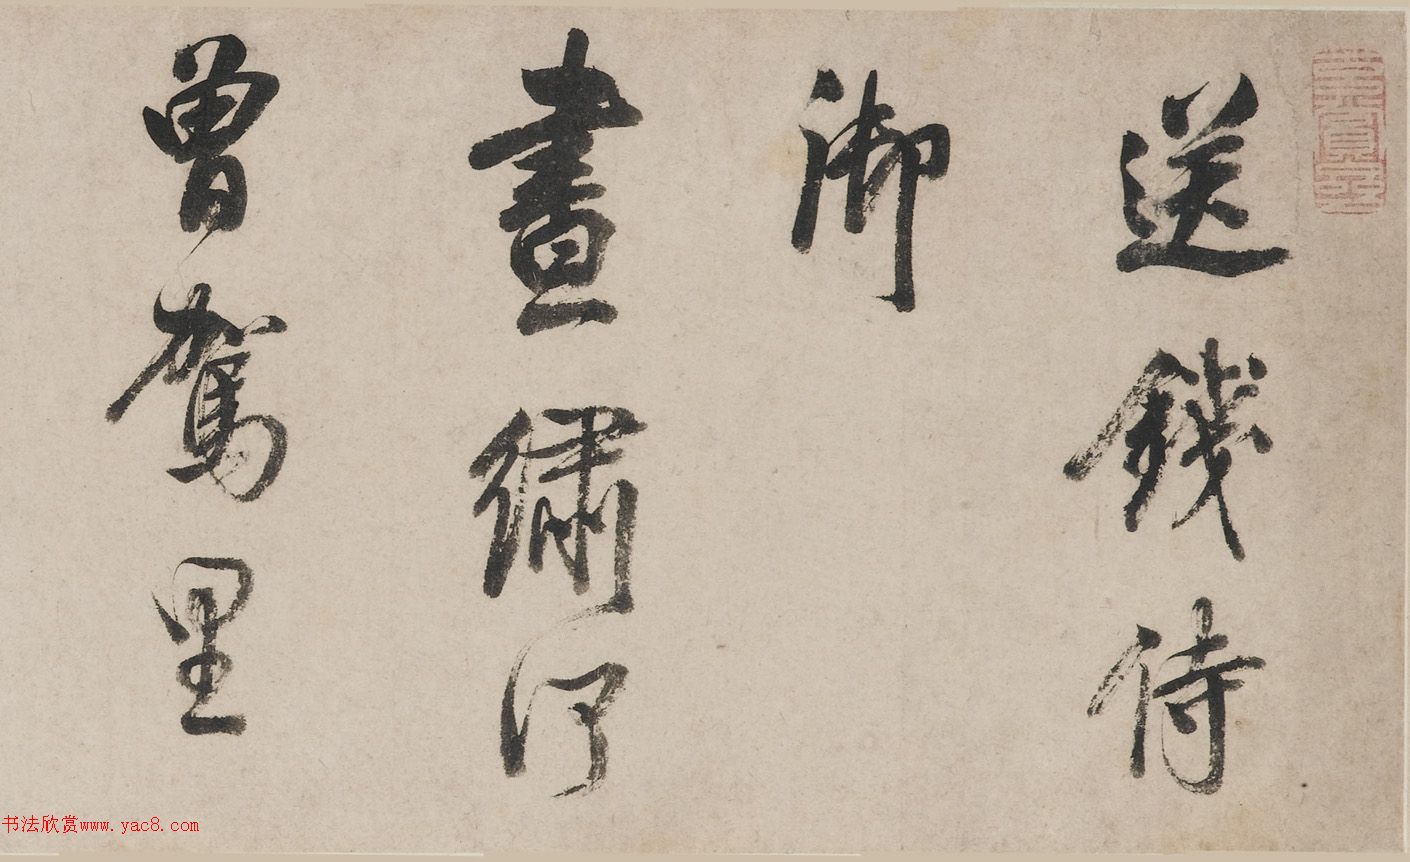 送錢侍
御
晝繡何
曾駕里
书法欣赏www.yac8.com